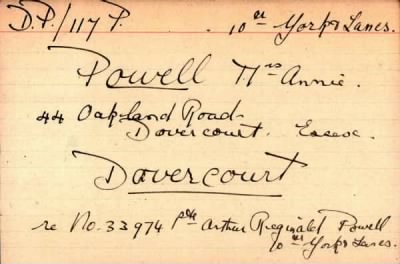 D.P./117 P. 10th York & Lancs.
Powell Mrs Annie.
44 Oakland Road
Dovercourt. Essex.
Dovercourt
re No. 33974 Pte Arthur Reginald Powell
10th York & Lancs.